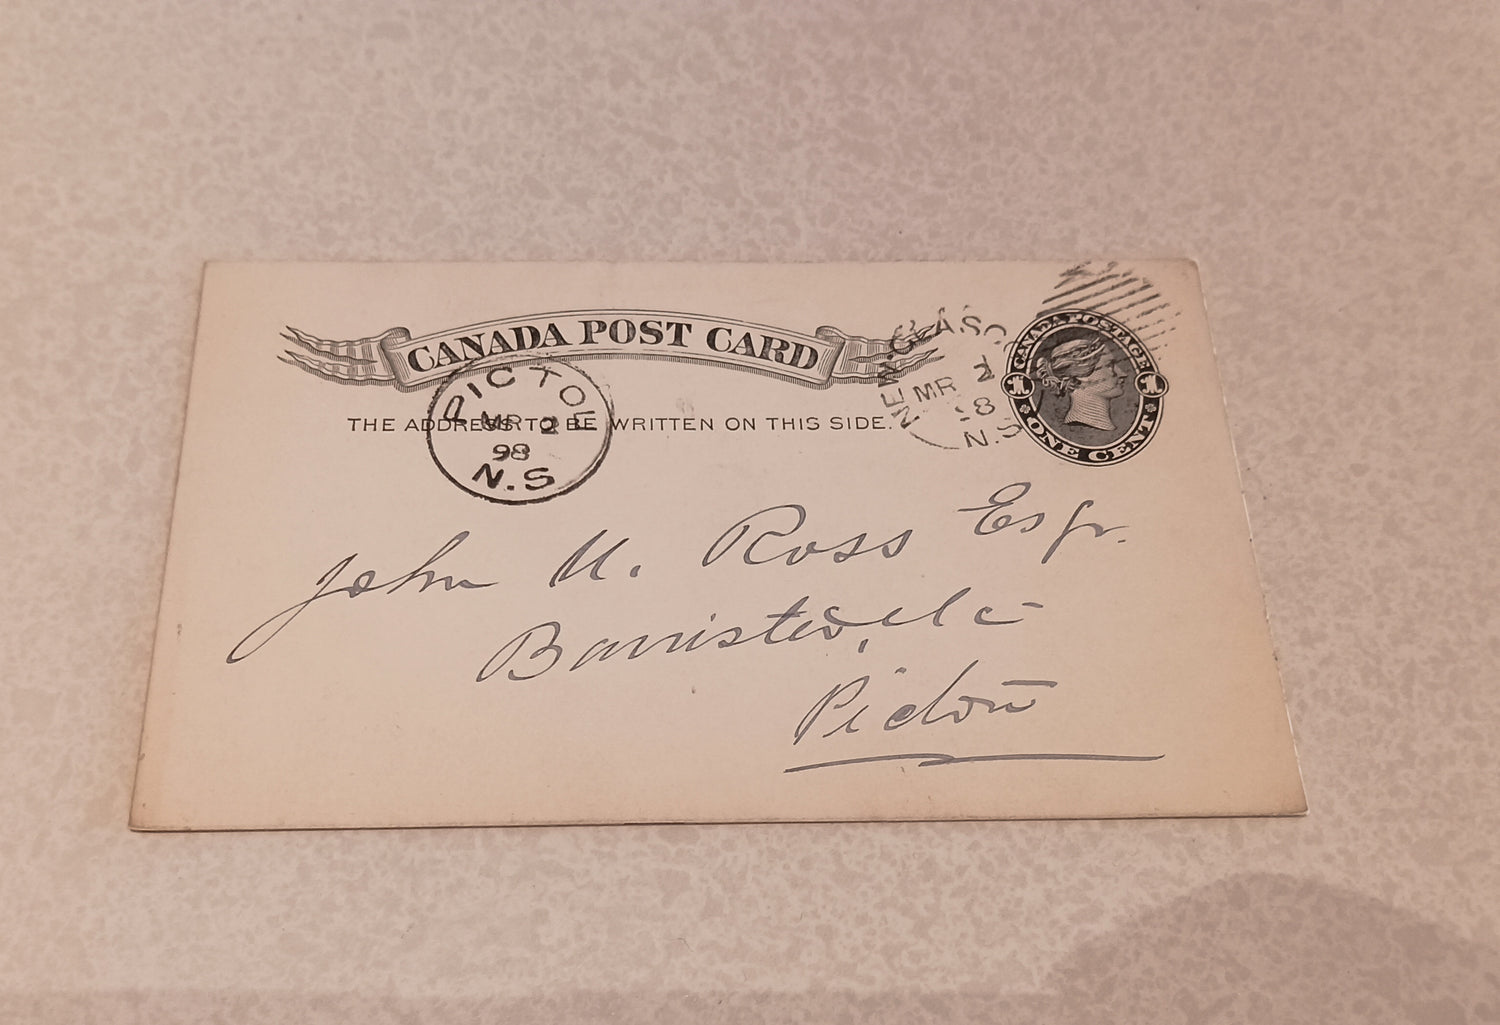 CANADA POST CARD
THE ADDRESS TO BE WRITTEN ON THIS SIDE.
PICTOU
MR 2
98
N.S
NEW. GLASGO
MR 2
98
N.S
CANADA POSTAGE
1 1
ONE CENT
John U. Ross Esqr.
Barrister, etc
Pictou